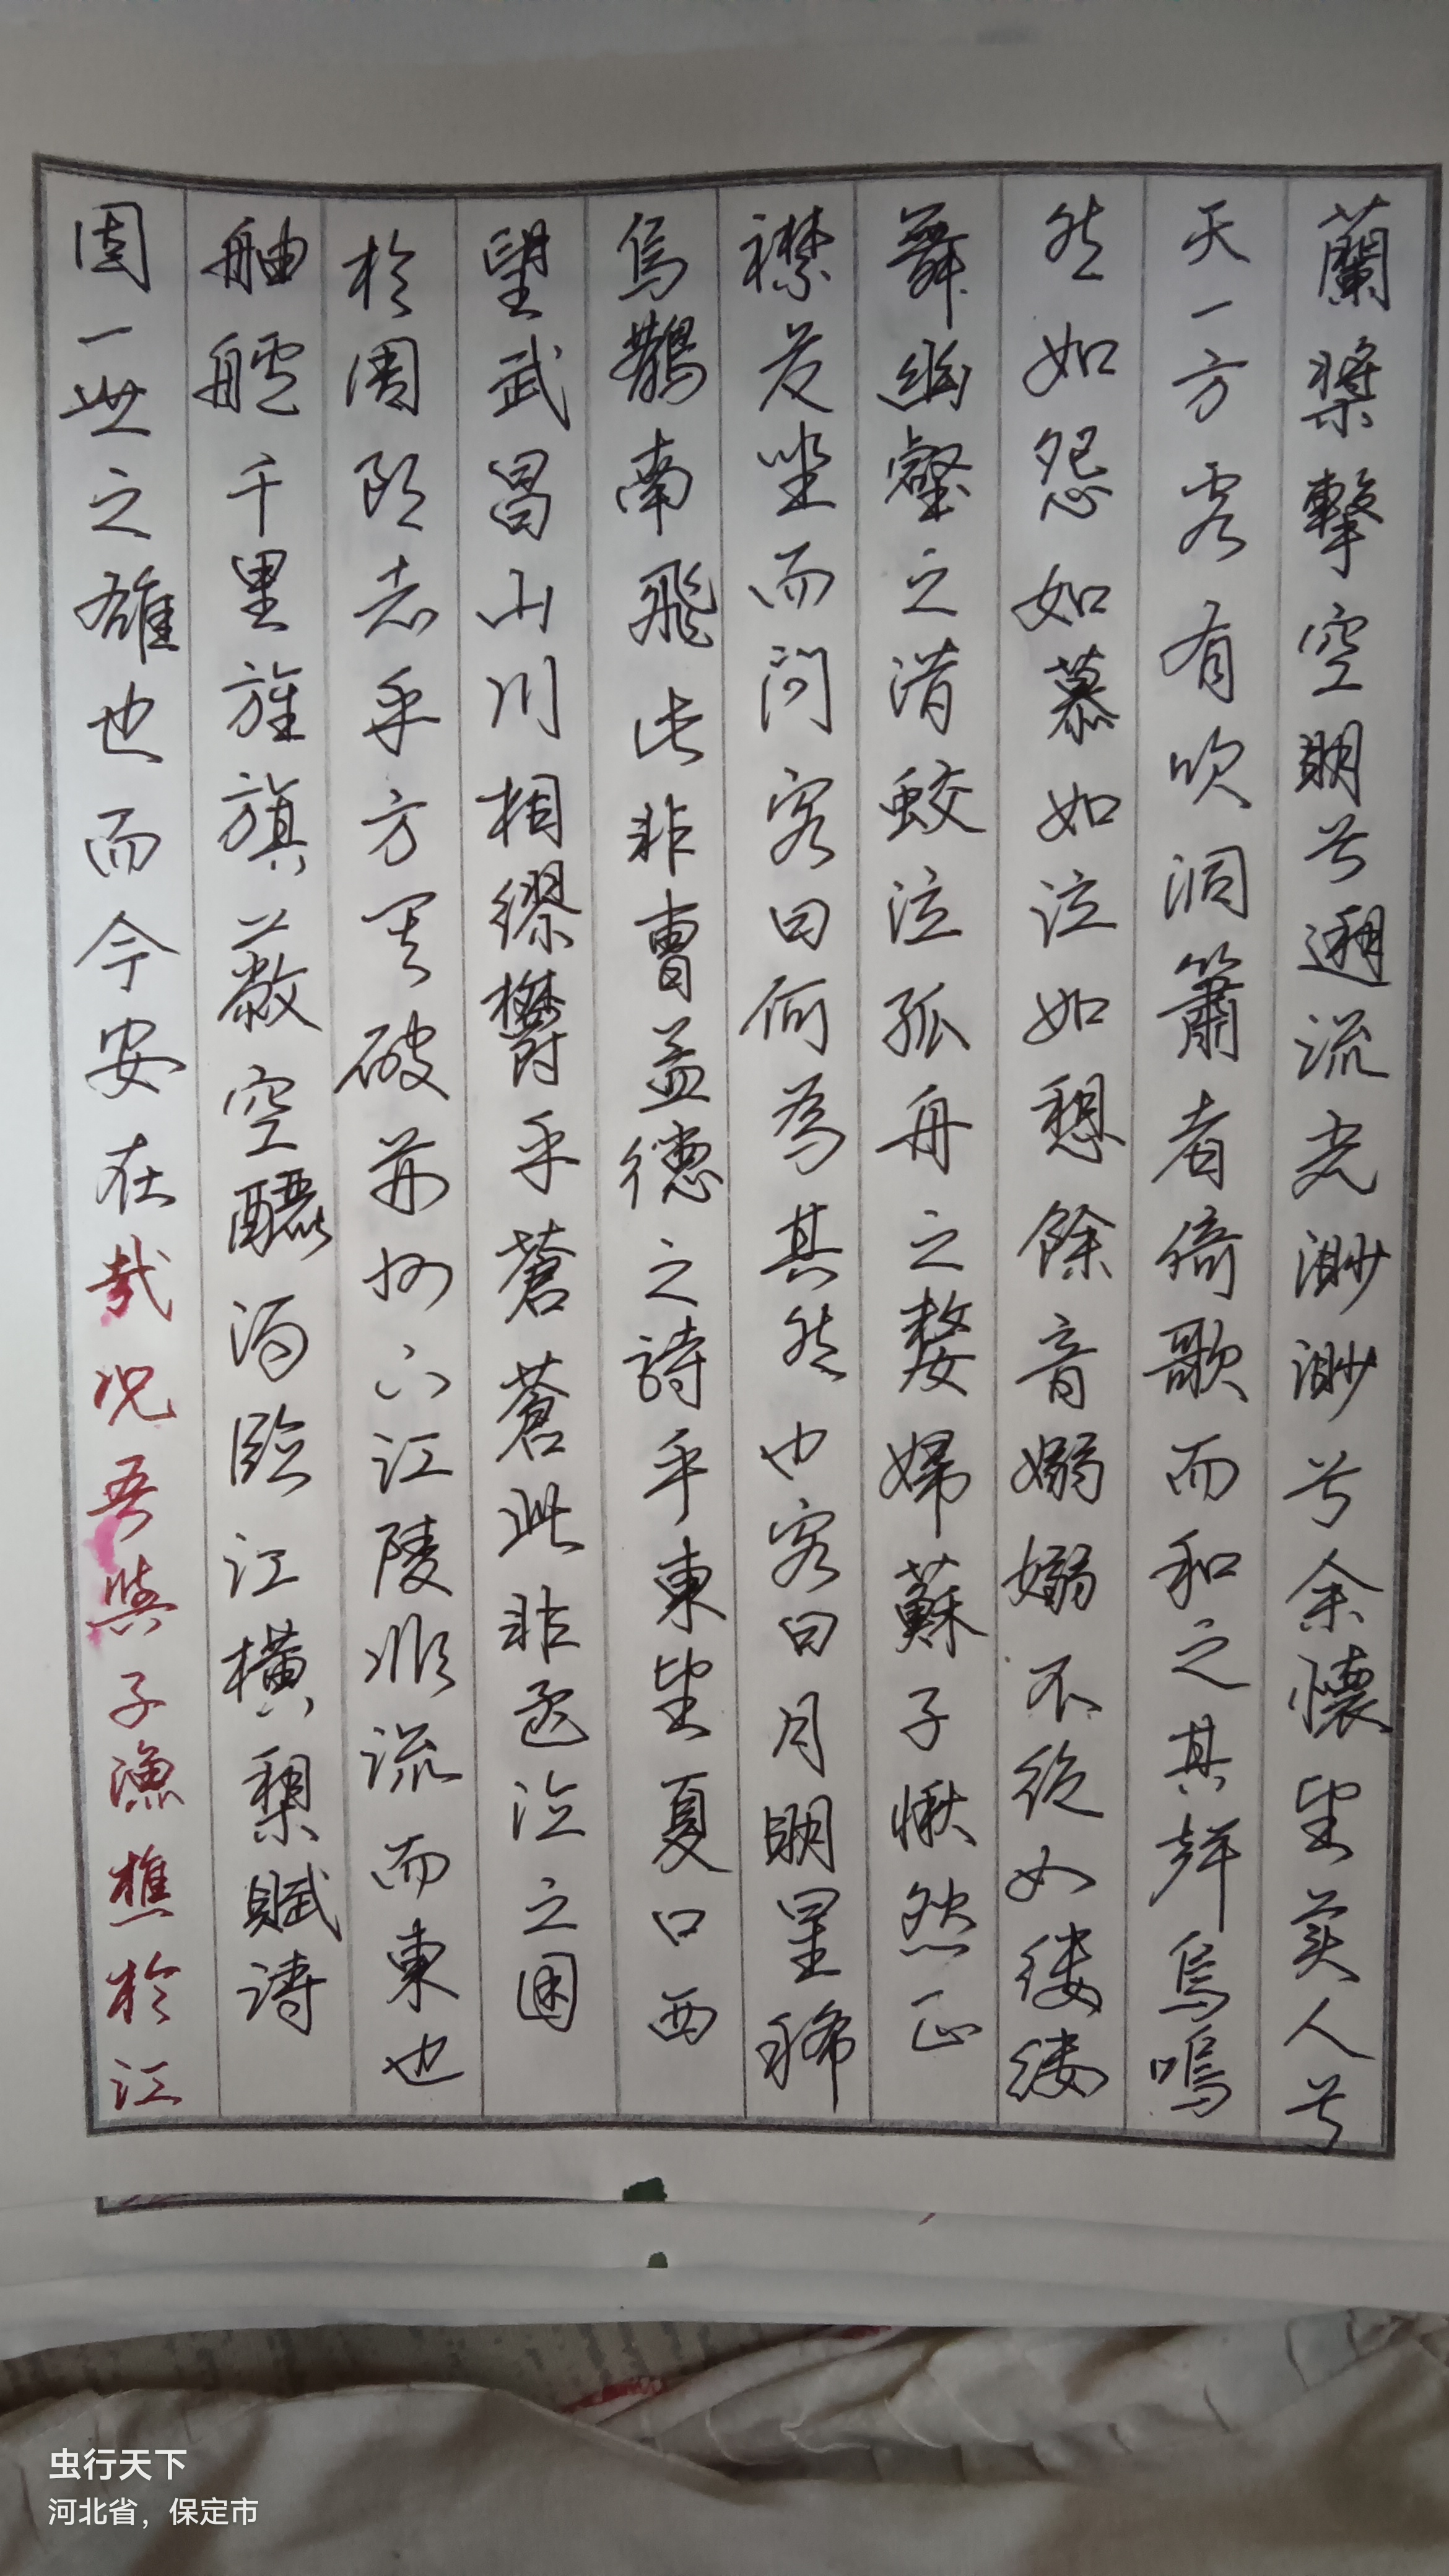 蘭槳擊空明兮遡流光渺渺兮余懷望美人兮
天一方客有吹洞簫者倚歌而和之其聲烏嗚
然如怨如慕如泣如愬餘音嫋嫋不絕如縷縷
舞幽壑之潛蛟泣孤舟之嫠婦蘇子愀然正
襟危坐而問客曰何為其然也客曰月明星稀
烏鵲南飛此非曹孟德之詩乎東望夏口西
望武昌山川相繆欝乎蒼蒼此非孟德之困
於周郎者乎方其破荊州下江陵順流而東也
舳艫千里旌旗蔽空釃酒臨江橫槊賦詩
固一世之雄也而今安在哉況吾與子漁樵於江
虫行天下
河北省，保定市